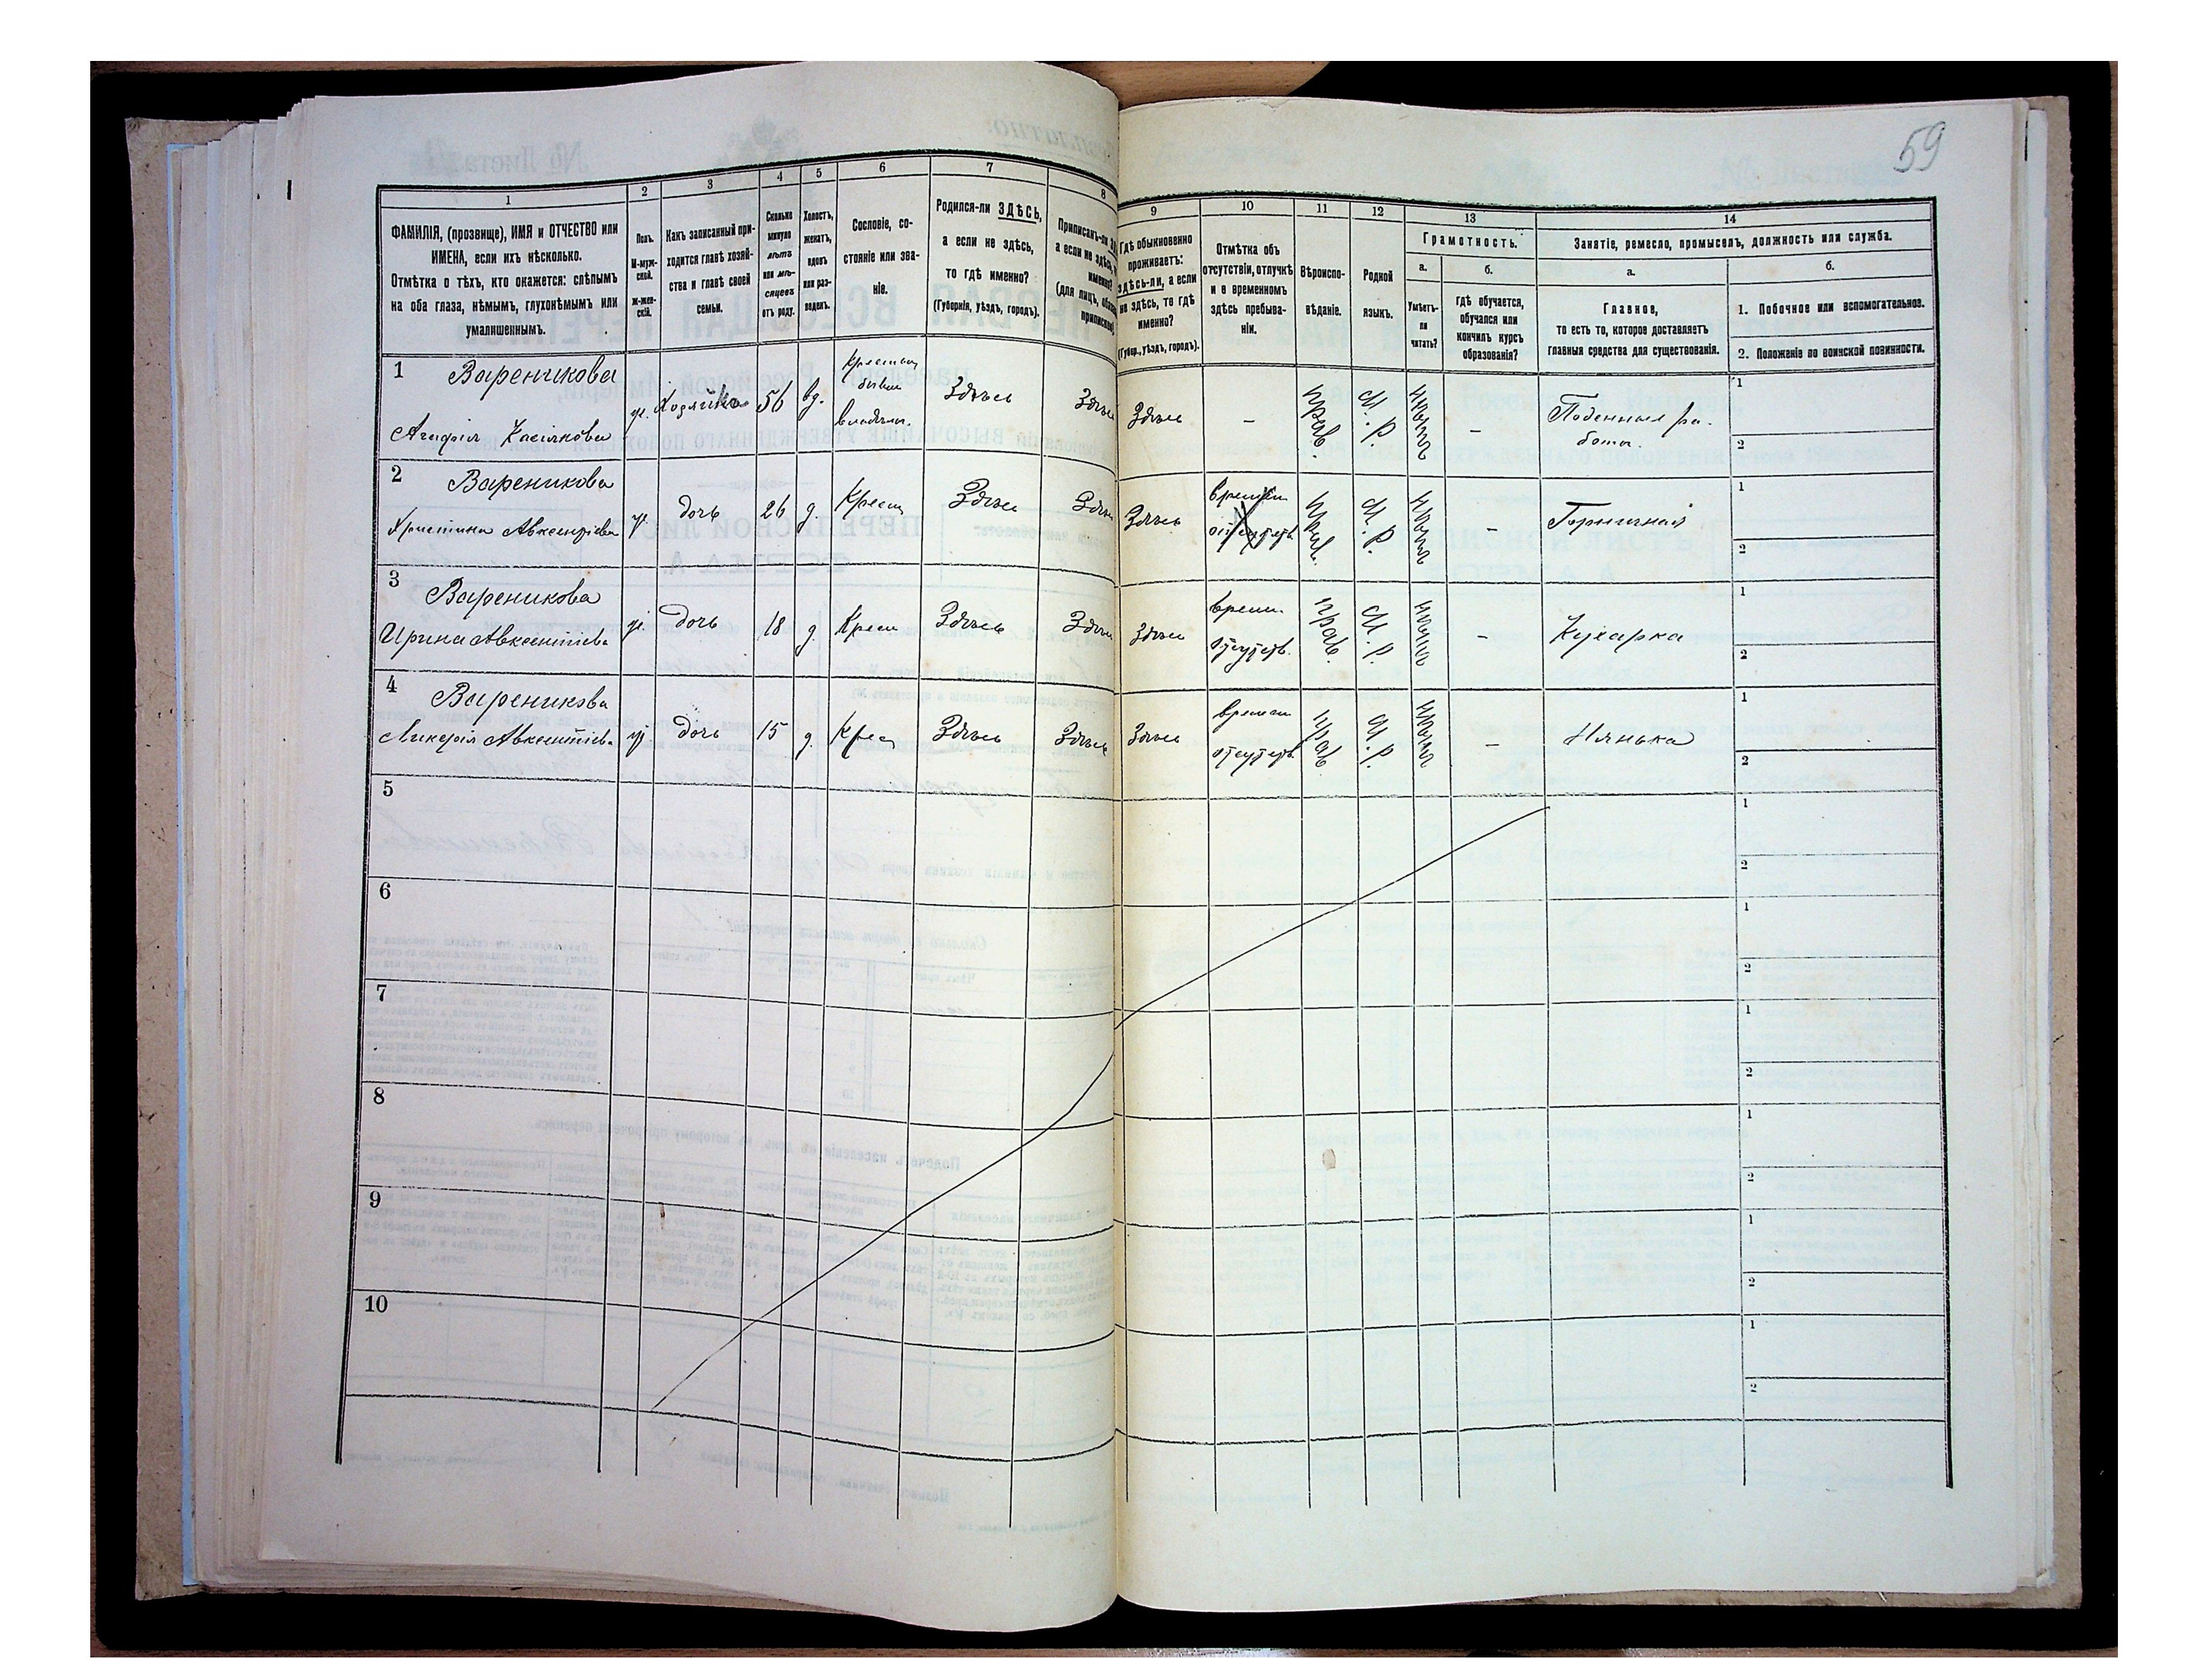 59
1 2 3 4 5 6 7 8 9 10 11 12 13 14
ФАМИЛІЯ, (прозвище), ИМЯ и ОТЧЕСТВО или
ИМЕНА, если ихъ нѣсколько.
Отмѣтка о тѣхъ, кто окажется: слѣпымъ
на оба глаза, нѣмымъ, глухонѣмымъ или
умалишеннымъ.
Полъ.
М-муж-
ской.
Ж-жен-
скій.
Какъ записанный при-
ходится главѣ хозяй-
ства и главѣ своей
семьи.
Сколько
минуло
лѣтъ
или мѣ-
сяцевъ
отъ роду.
Холостъ,
женатъ,
вдовъ
или раз-
веденъ.
Сословіе, со-
стояніе или зва-
ніе.
Родился-ли ЗДѢСЬ,
а если не здѣсь,
то гдѣ именно?
(Губернія, уѣздъ, городъ).
Приписанъ-ли
а если не здѣсь,
именно?
(для лицъ,
Гдѣ обыкновенно
проживаетъ:
здѣсь-ли, а если
не здѣсь, то гдѣ
именно?
(Губер., уѣздъ, городъ).
Отмѣтка объ
отсутствіи, отлучкѣ
и о временномъ
здѣсь пребыва-
ніи.
Вѣроиспо-
вѣданіе.
Родной
языкъ.
Грамотность.
а.
Умѣетъ-
ли
читать?
б.
гдѣ обучается,
обучался или
кончилъ курсъ
образованія?
Занятіе, ремесло, промыселъ, должность или служба.
а.
Главное,
то есть то, которое доставляетъ
главныя средства для существованія.
б.
1. Побочное или вспомогательное.
2. Положеніе по воинской повинности.
1 Вареникова
Агафія Касіянова
ж. Хозяйка 56 вд.
бывш.
владѣльч.
Здѣсь Здѣсь Здѣсь – прав М.Р. – Поденная ра-
бота.
1
2
2 Вареникова
Христина Авксентіева ж. дочь 26 д. Крест Здѣсь Здѣсь Здѣсь времен
отсутств. прав. М.Р. – Горничная
1
2
3 Вареникова
Ирина Авксентіева ж. дочь 18 д. Крест Здѣсь Здѣсь Здѣсь времен.
отсутств. прав. М.Р. – Кухарка
1
2
4 Вареникова
Ликерія Авксентіева ж дочь 15 д. Крест Здѣсь Здѣсь Здѣсь времен
отсутств. прав. М.Р. – Нянька
1
2
5
1
2
6
1
2
7
1
2
8
1
2
9
1
2
10
1
2